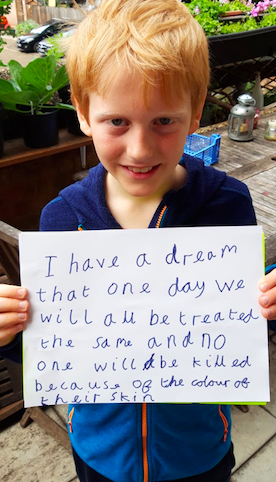 I have a dream
that one day we
will all be treated
the same and no
one will be killed
because of the colour of
their skin